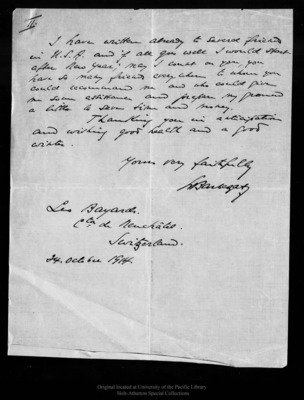 IV
I have written already to several friends
in U.S.A. and if all goes well I would start
after New Year. May I count on you, you
have so many friends everywhere to whom you
could recommend me and who could give
me some assistance and prepare my ground
a little to save time and money.
Thanking you in anticipation
and wishing good health and a good
winter.
Yours very faithfully
Les Bayards.
Ctn de Neuchâtel.
Switzerland.
24. Octobre 1914.
Original located at University of the Pacific Library
Holt-Atherton Special Collections